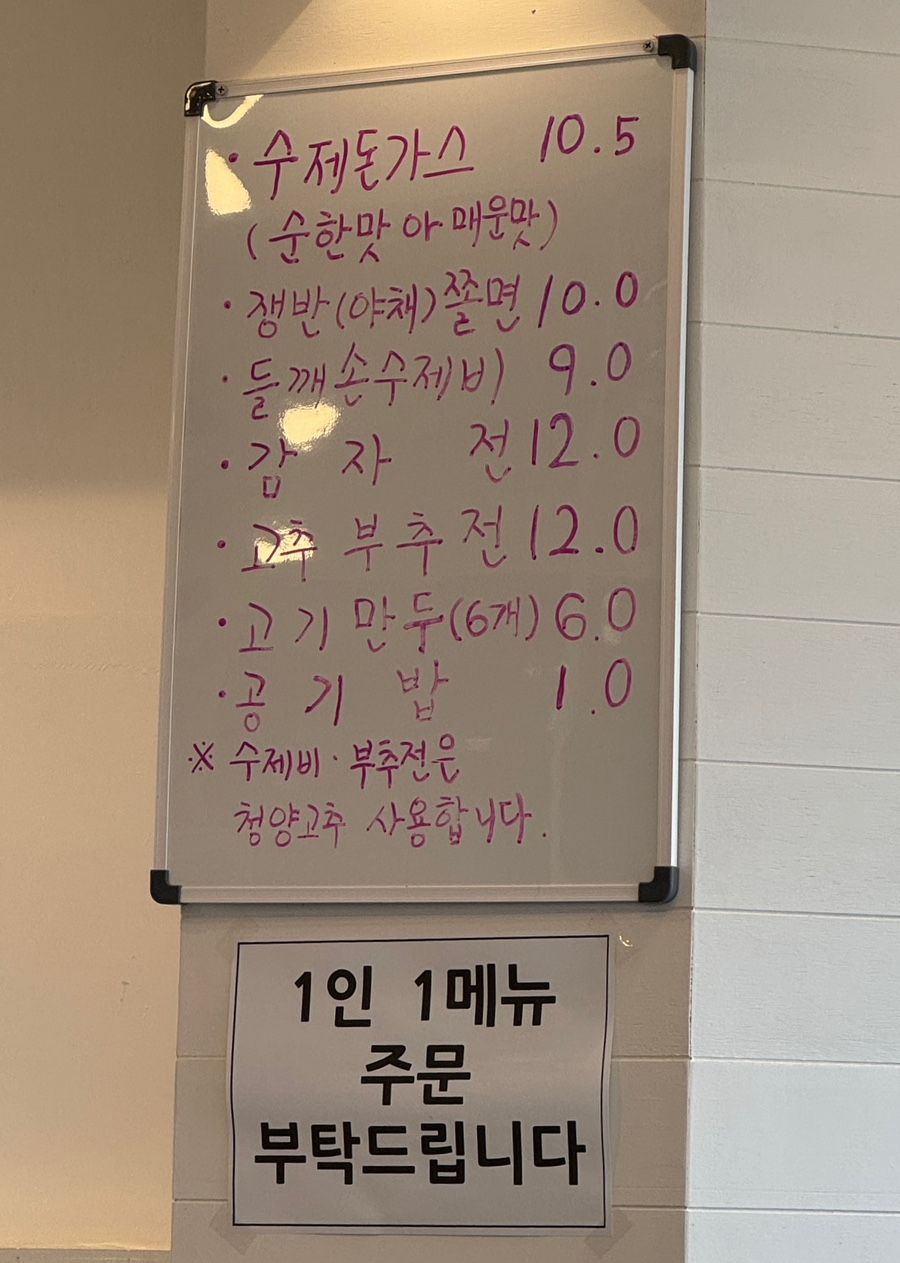 · 수제돈가스 10.5
(순한맛 아 매운맛)
· 쟁반(야채)쫄면 10.0
· 들깨손수제비 9.0
· 감 자 전 12.0
· 고추 부추전 12.0
· 고기만두(6개) 6.0
· 공 기 밥 1.0
※ 수제비·부추전은
청양고추 사용합니다.
1인 1메뉴
주문
부탁드립니다